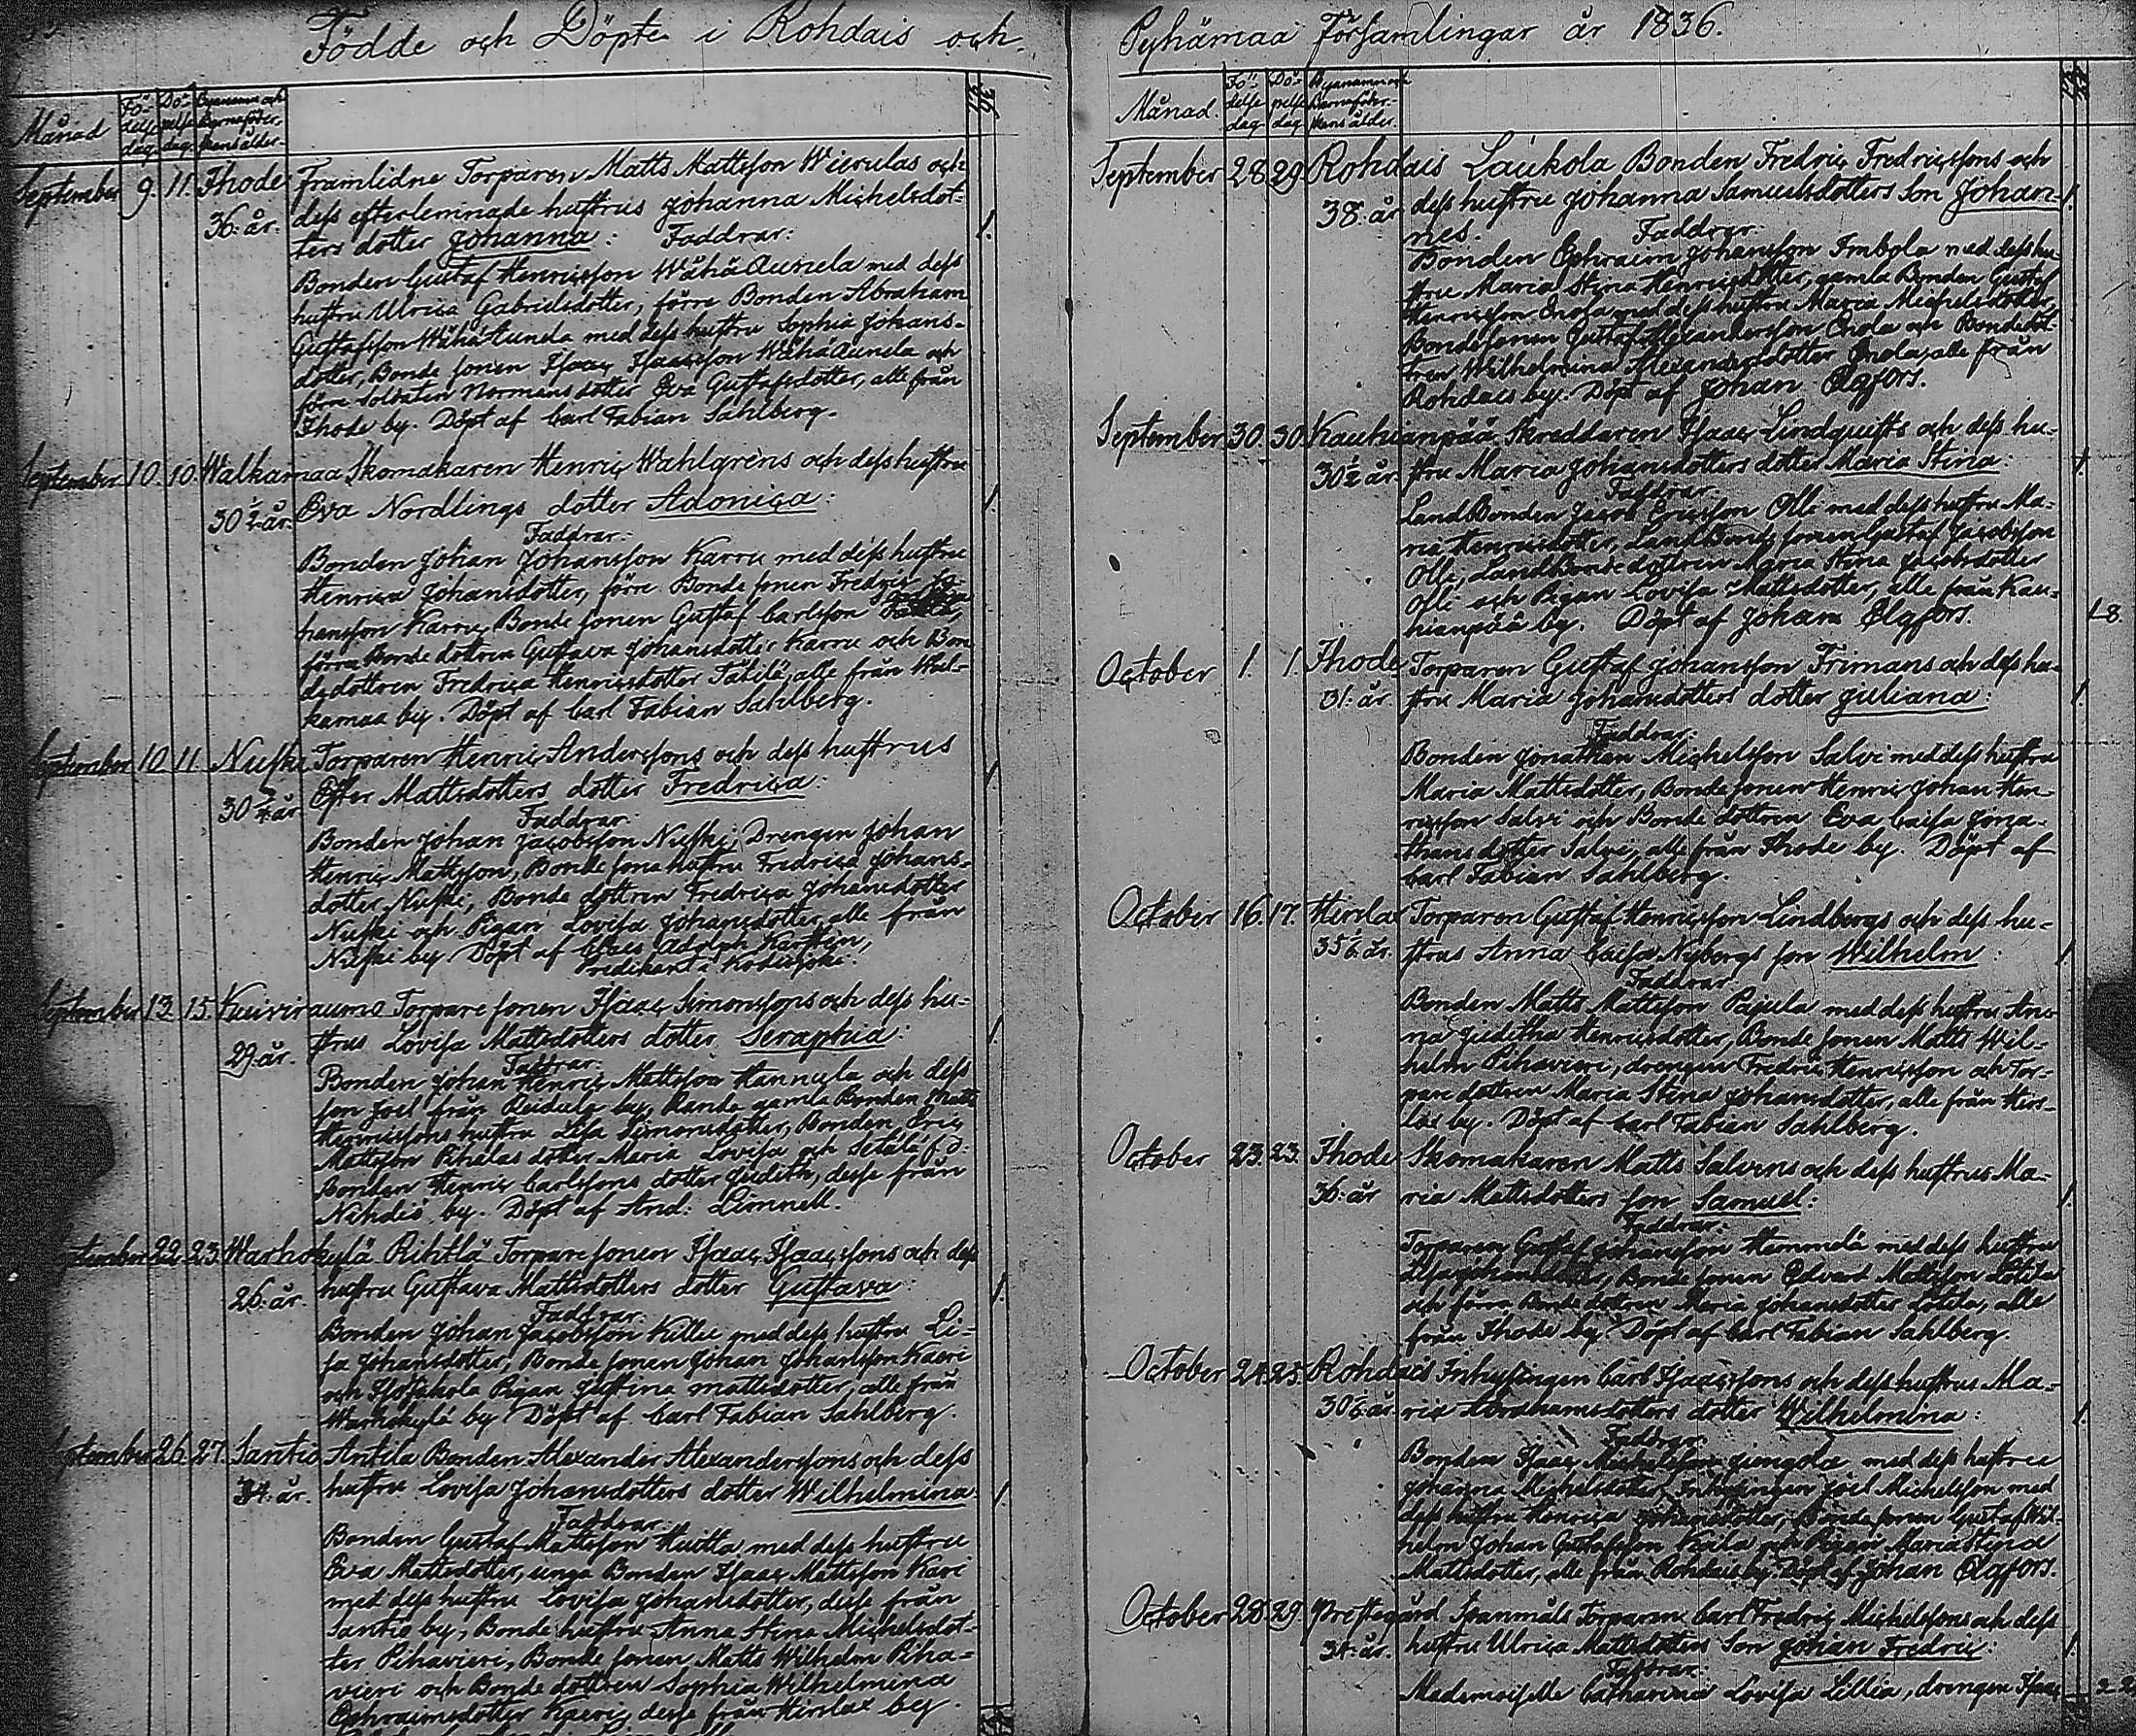 Födde och Döpte i Rohdais och
Månad
Fö-
delse
dag.
Dö-
pelse
dag.
Byanamn och
Barnaföder-
skans ålder.
September 9. 11. Ihode Framlidne Torparen Matts Mattsson Wierulas och
36. år. dess efterlemnade hustrus Johanna Michelsdot-
ters dotter Johanna: Faddrar: 1.
Bonden Gustaf Henricsson WähäAunela med dess
hustru Ulrica Gabrielsdotter, förre Bonden Abraham
Gustafsson WähäAunela med dess hustru Sophia Johans-
dotter, Bonde sonen Isaac Isaacsson WähäAunela och
förre Soldaten Normans dotter Eva Gustafsdotter, alle från
Ihode by. Döpt af Carl Fabian Sahlberg.
September 10. 10. Walkamaa Skomakaren Henric Wahlgréns och dess hustru
30 1/2 år. Eva Nordlings dotter Adonica: 1.
Faddrar:
Bonden Johan Johansson Karru med dess hustru
Henrica Johansdotter, förre Bonde sonen Fredric Jo-
hansson Karru, Bonde sonen Gustaf Carlsson
förra Bonde dottren Gustava Johansdotter Karru och Bon-
dedottren Fredrica Henricsdotter Tätilä, alle från Wal-
kamaa by. Döpt af Carl Fabian Sahlberg.
September 10. 11. Nuski Torparen Henric Anderssons och dess hustrus
30 3/4 år Ester Mattsdotters dotter Fredrica: 1.
Faddrar:
Bonden Johan Jacobsson Nuski, Drengen Johan
Henric Mattsson, Bonde sons hustru Fredrica Johans-
dotter Nuski, Bonde dottren Fredrica Johansdotter
Nuski och Pigan Lovisa Johansdotter, alle från
Nuski by. Döpt af Claes Adolph Karsten,
Predikant i Kodisjoki.
September 13. 15. Kuivirauma Torpare sonen Isaac Simonssons och dess hu-
29. år. strus Lovisa Mattsdotters dotter Seraphia: 1.
Faddrar:
Bonden Johan Henric Mattsson Hannula och dess
son Joel från Reidula by, Rande gamla Bonden Matts
Henricssons hustru Lisa Simonsdotter, Bonden Eric
Mattsson Pihalas dotter Maria Lovisa och Setälä f. d.
Bonden Henric Carlssons dotter Judith, desse från
Nihdiö by. Döpt af And: Limnell.
September 22. 23. Warhokylä Rihtlä Torpare sonen Isaac Isaacssons och dess
26. år. hustru Gustava Mattsdotters dotter Gustava: 1.
Faddrar:
Bonden Johan Jacobsson Killu med dess hustru Li-
sa Johansdotter, Bonde sonen Johan Johansson Kaeri
och Isosakola Pigan Justina Mattsdotter, alle från
Warhokylä by. Döpt af Carl Fabian Sahlberg.
September 26. 27. Santio Antila Bonden Alexander Alexanderssons och dess
34. år. hustru Lovisa Johansdotters dotter Wilhelmina 1.
Faddrar:
Bonden Gustaf Mattsson Huitla med dess hustru
Eva Mattsdotter, unga Bonden Isaac Mattsson Kari
med dess hustru Lovisa Johansdotter, desse från
Santio by, Bonde hustru Anna Stina Michelsdot-
ter Pihavieri, Bonde sonen Matts Wilhelm Piha-
vieri och Bonde dottren Sophia Wilhelmina
Ephraimsdotter Kaeri, desse från Hirslax by.
Pyhämaa Församlingar år 1836.
Månad.
Fö-
delse
dag
Dö-
pelse
dag
Byanamn och
Barnaföder-
skans ålder.
September 28. 29. Rohdais Laukola Bonden Fredric Fredricssons och
38. år dess hustru Johanna Samuelsdotters Son Johan- 1.
nes. Faddrar:
Bonden Ephraim Johansson Imbola med dess hu-
stru Maria Stina Henricsdotter, gamla Bonden Gustaf
Henricsson Onola med dess hustru Maria Michelsdotter,
Bondesonen Gustaf Alexandersson Onola och Bondedot-
tren Wilhelmina Alexandersdotter Onola, alle från
Rohdais by. Döpt af Johan Elgfors.
September 30. 30. Kauhianpää Skreddaren Isaac Lindquists och dess hu-
30 1/2 år. stru Maria Johansdotters dotter Maria Stina: 1.
Faddrar:
LandBonden Jacob Ericsson Olli med dess hustru Ma-
ria Henricsdotter, LandBonde sonen Gustaf Jacobsson
Olli, LandBonde dottren Maria Stina Jacobsdotter
Olli och Pigan Lovisa Mattsdotter, alle från Kau-
hianpää by. Döpt af Johan Elgfors. 8.
October 1. 1. Ihode Torparen Gustaf Johansson Frimans och dess hu-
31. år. stru Maria Johansdotters dotter Juliana: 1.
Faddrar:
Bonden Jonathan Michelsson Salvi med dess hustru
Maria Mattsdotter, Bonde sonen Henric Johan Hen-
ricsson Salvi och Bonde dottren Eva Caisa Jona-
thansdotter Salvi, alle från Ihode by. Döpt af
Carl Fabian Sahlberg.
October 16. 17. Hirslax Torparen Gustaf Henricsson Lindbergs och dess hu-
35 1/2 år. strus Anna Caisa Nybergs son Wilhelm: 1.
Faddrar:
Bonden Matts Mattsson Pajula med dess hustru An-
na Juditha Henricsdotter, Bonde sonen Matts Wil-
helm Pihavieri, drengen Fredric Henricsson och Tor-
pare dottren Maria Stina Johansdotter, alle från Hirs-
lax by. Döpt af Carl Fabian Sahlberg.
October 23. 23. Ihode Skomakaren Matts Salvens och dess hustrus Ma-
36. år ria Mattsdotters son Samuel: 1.
Faddrar:
Torparen Gustaf Johansson Hemmilä med dess hustru
Lisa Johansdotter, Bonde sonen Edvard Mattsson Lötila
och förra Bonde dottren Maria Johansdotter Lötila, alle
från Ihode by. Döpt af Carl Fabian Sahlberg.
October 24. 25. Rohdais Inhysingen Carl Isaacssons och dess hustrus Ma-
30 1/2 år ria Abrahamsdotters dotter Wilhelmina: 1.
Faddrar:
Bonden Isaac Michelsson Jungola med dess hustru
Johanna Michelsdotter, Inhysingen Joel Michelsson med
dess hustru Henrica Johansdotter, Bonde sonen Gustaf Wil-
helm Johan Gustafsson Kaila och Pigan Maria Stina
Mattsdotter, alle från Rohdais by. Döpt af Johan Elgfors.
October 28. 29. Prestegård Spanmåls Torparen Carl Fredric Michelssons och dess
34. år. hustru Ulrica Mattsdotters Son Johan Fredric: 1.
Faddrar:
Mademoiselle Catharina Lovisa Lillia, drengen Isaac